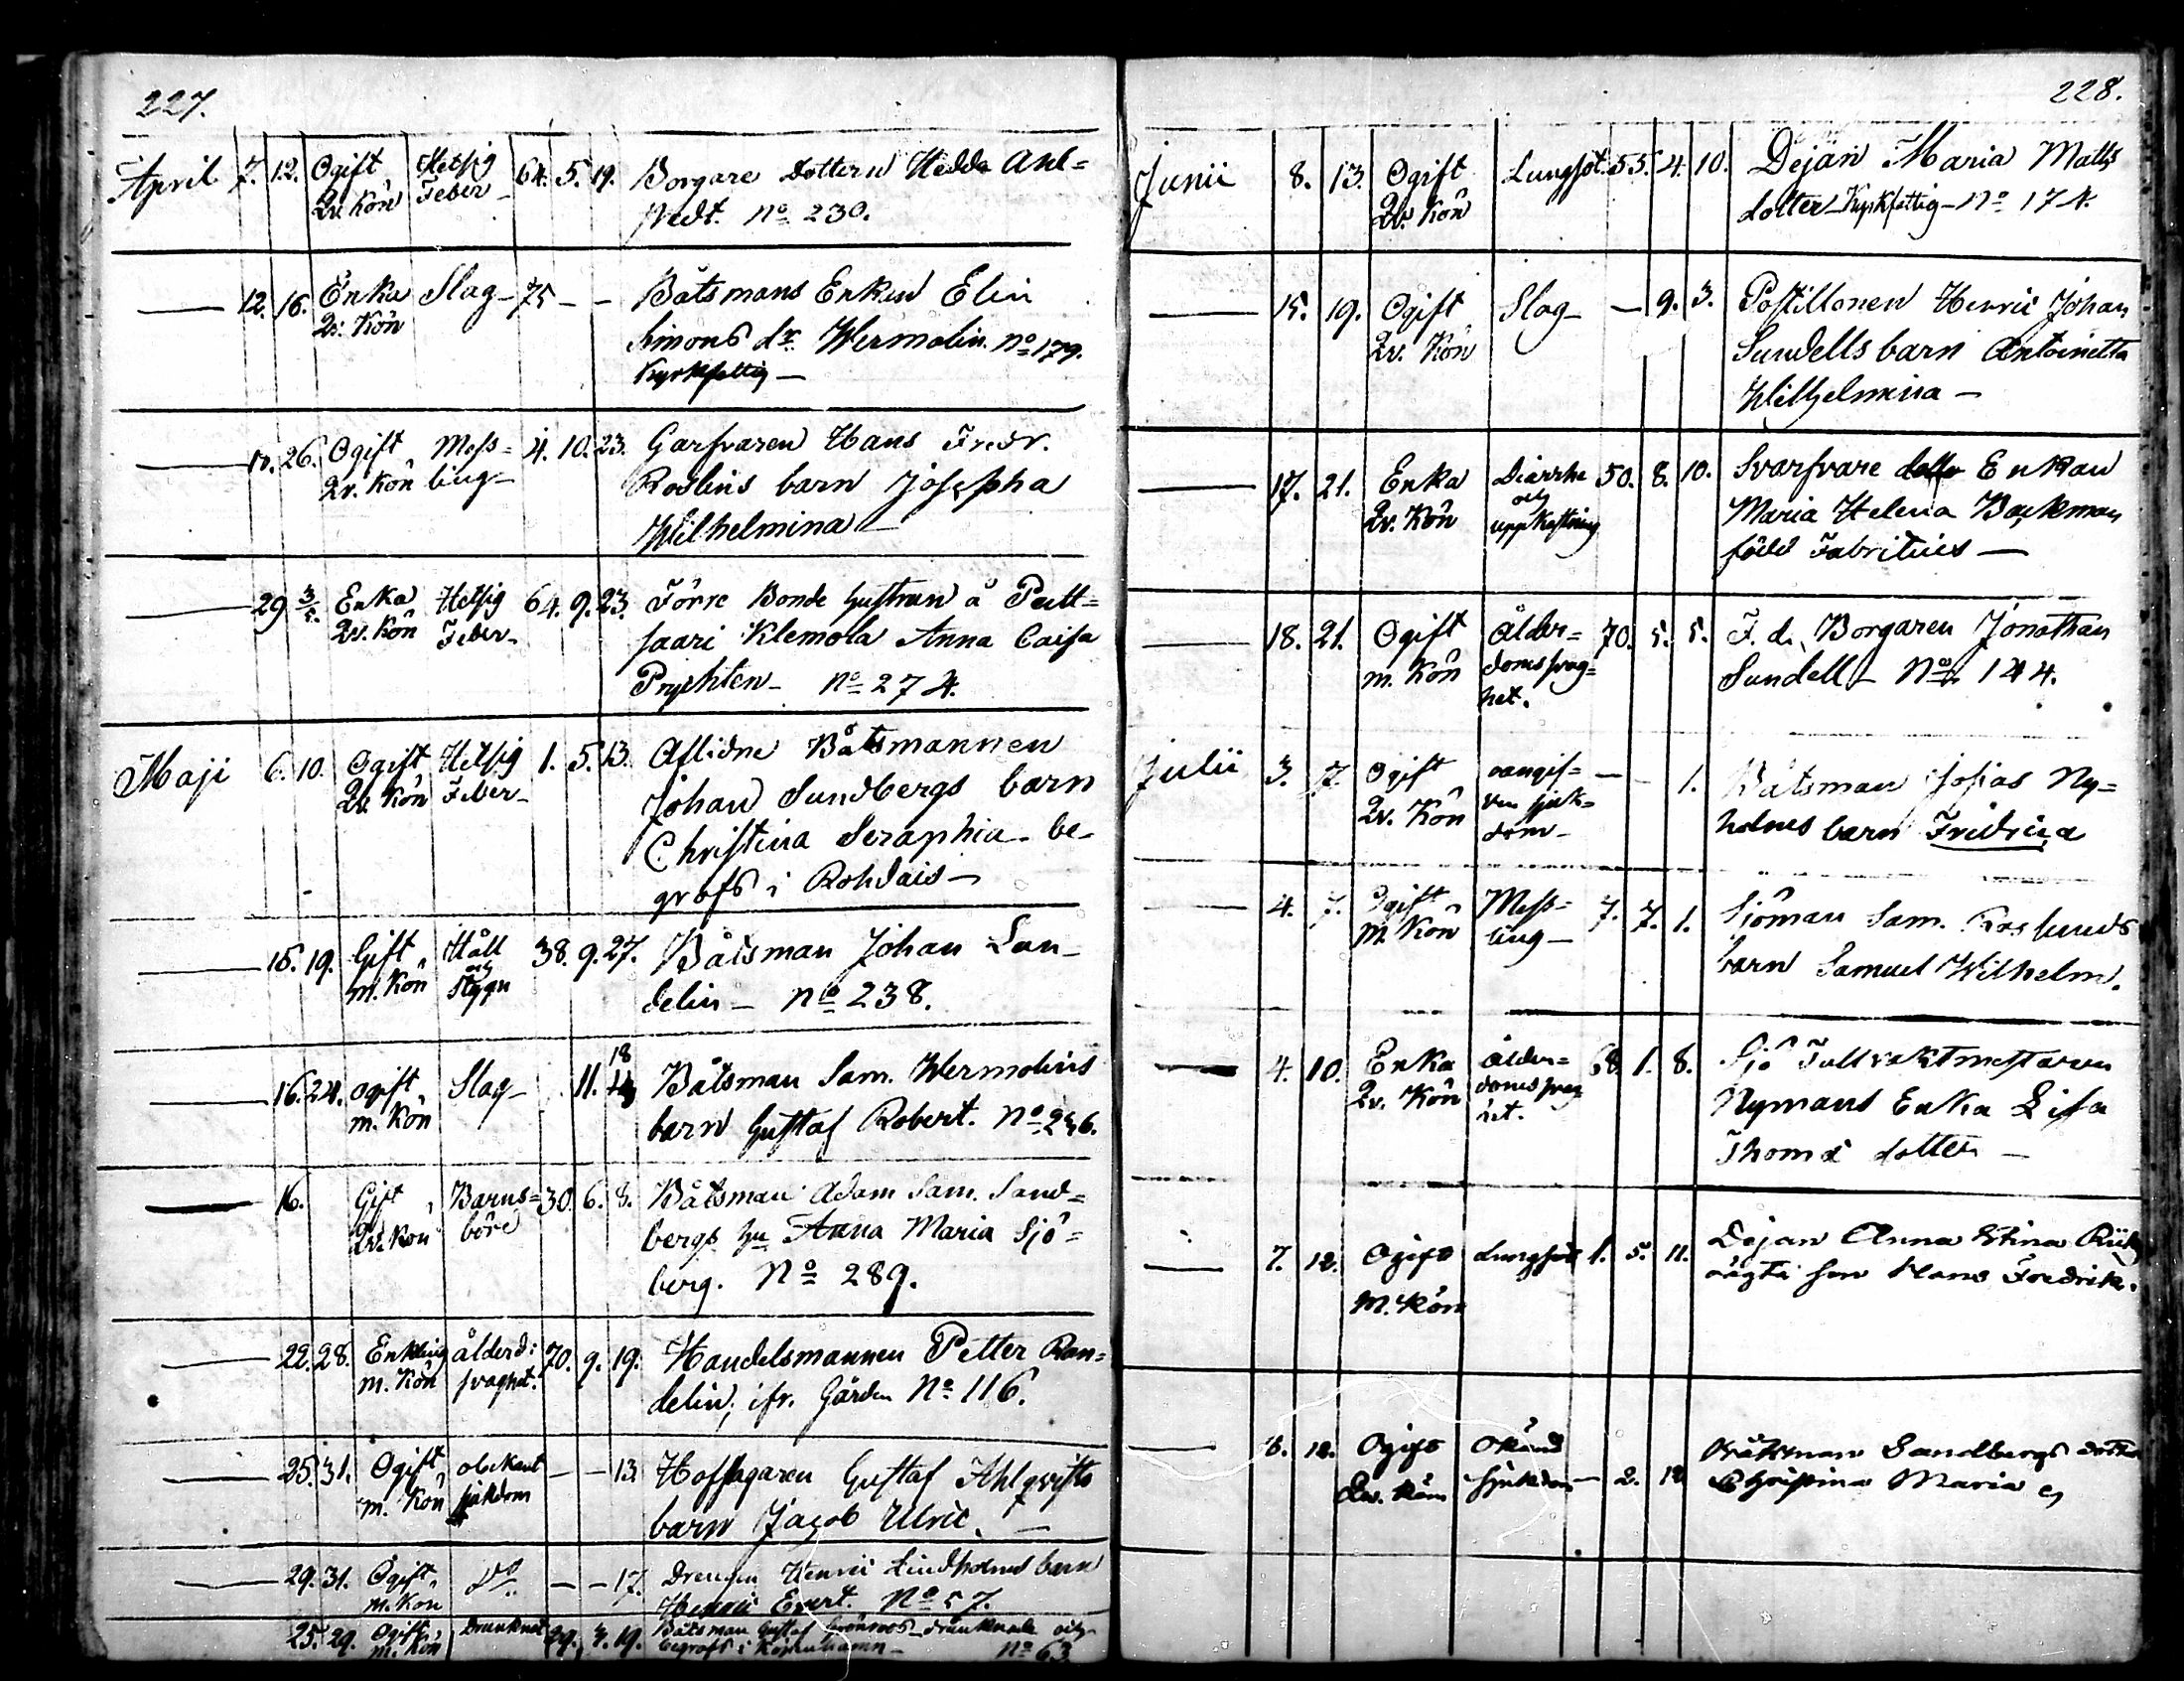 227.
April 7. 12. Ogift Hetsig 64. 5. 19. Borgare dottern Hedda Ahl=
Qv. Kön Feber - stedt. No 230.
12. 16. Enka Slag - 75 - - Båtsmans Enkan Elin
Qv. Kön Simons dr Wermolin. No 179.
Kyrkfattig -
26. Ogift Mess= 4. 10. 23. Garfvaren Hans Fredr.
Qv. Kön ling - Roslins barn Josepha
Wilhelmina -
29 3/5. Enka Hetsig 64. 9. 23. Förre Bonde hustrun å Patt=
Qv. Kön Feber - saari Klemola Anna Caisa
No 274.
Maji 6. 10. Ogift Hetsig 1. 5. 13. Aflidne Båtsmannen
Qv. Kön Feber - Johan Sundbergs barn
Christina Seraphia - be-
grofs i Rohdais -
15. 19. Gift Håll 38. 9. 27. Båtsman Johan San-
m. Kön och Stygn delin - No 238.
18
16. 24. ogift Slag - 11. Båtsman Sam. Wermolins
m. Kön barn Gustaf Robert. No 236.
16. Gift Barns= 30. 6. 8. Båtsman Adam Sam. Sand=
Qv. Kön börd bergs hu Anna Maria Sjö=
berg. No 289.
22. 28. Enkling ålderd: 70. 9. 19. Handelsmannen Petter Ran=
m. Kön svaghet. delin, ifr. Gården No 116.
25. 31. Ogift obekant - - 13. Gustaf Ahlqvists
m. Kön sjukdom barn Jacob Ulric. -
29. 31. Ogift Do - - 17. Drengen Henric Lindholms barn
m. Kön Henric Evert. No 57.
25. 29. Ogift Drunknat 29. 7. 19. Båtsman Gustaf Grönroos - drunknade och
m. Kön begrofs i Köpenhamn - No 63
228.
Junii 8. 13. Ogift Lungsot. 55. 4. 10. Dejan Maria Matts
Qv. Kön dotter - Kyrkfattig - No 174.
15. 19. Ogift Slag - - 9. 3. Postillonen Henric Johan
Qv. Kön Sundells barn Antoinetta
Wilhelmina -
17. 21. Enka Diarrhe 50. 8. 10. Svarfvare Enkan
Qv. Kön och uppkastning Maria Helena Backman
född Fabritius -
18. 21. Ogift Ålder= 70. 5. 5. F. d. Borgaren Jonathan
m. Kön domssvag= Sundell - No 144.
het.
Julii 3. 7. Ogift oangif= - - 1. Båtsman Josias Ny=
Qv. Kön ven sjuk= holms barn Fredrica
dom -
4. 7. Ogift Mess= 7. 7. 1. Sjöman Sam. Roslunds
m. Kön ling - barn Samuel Wilhelm.
4. 10. Enka Ålder= 68. 1. 8. Sjö Tullvaktmestaren
Qv. Kön domssvag Nymans Enka Lisa
het. Thomæ dotter -
7. 12. Ogift Lungsot 1. 5. 11. Dejan Anna Stina
M. Kön oägta son Hans Fredrik.
8. 12. Ogift Okänd Båtsman Sandbergs dotter
Qv. Kön Sjukdom - 2. 12 Christina Maria